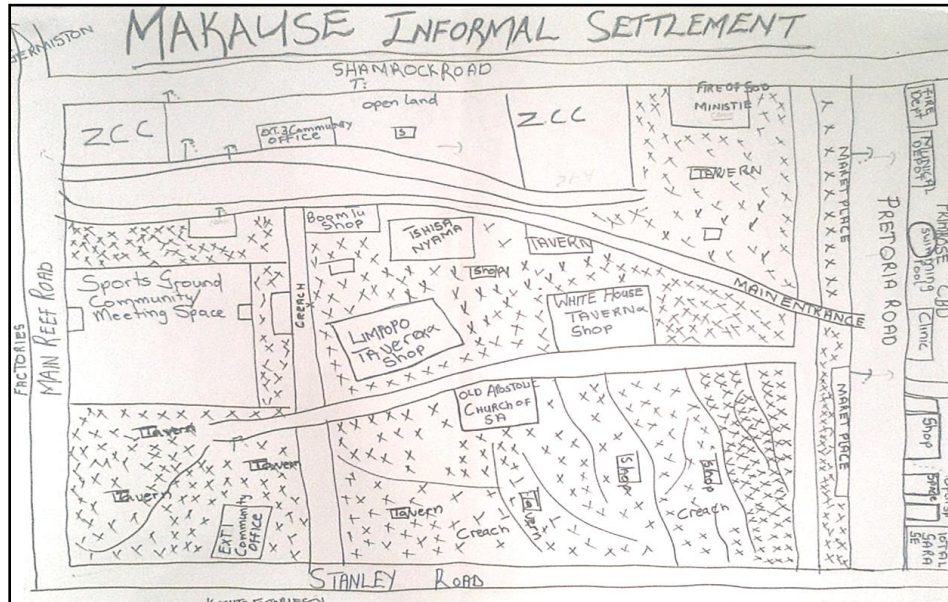 MAKAUSE INFORMAL SETTLEMENT
GERMISTON
SHAMROCKROAD
T:
open land
ZCC
EXT.3 Community
OFFICE
S
ZCC
FIRE OF GOD
MINISTIE
TAVERN
FIRE
Dept
MUNICAL
DEPOT
PRIMROSE
swimming
Pool
Clinic
MARET PLACE
PRETORIA ROAD
Boomlu
Shop
TSHISA
NYAMA
TAVERN
Shop
MAIN ENTRANCE
Sports Ground
Community/
Meeting Space
CREACH
LIMPOPO
TAVERNA
Shop
WHITE HOUSE
TAVERNA
Shop
FACTORIES
MAIN REEF ROAD
OLD APOSTOLIC
CHURCH OF
SA
MARET PLACE
Shop
Tavern
Tavern
Tavern
EXT 1
Community
OFFICE
Tavern
Creach
Tavern
Shop
Shop
Creach
Space
TOTAL
GARA
SE
STANLEY ROAD